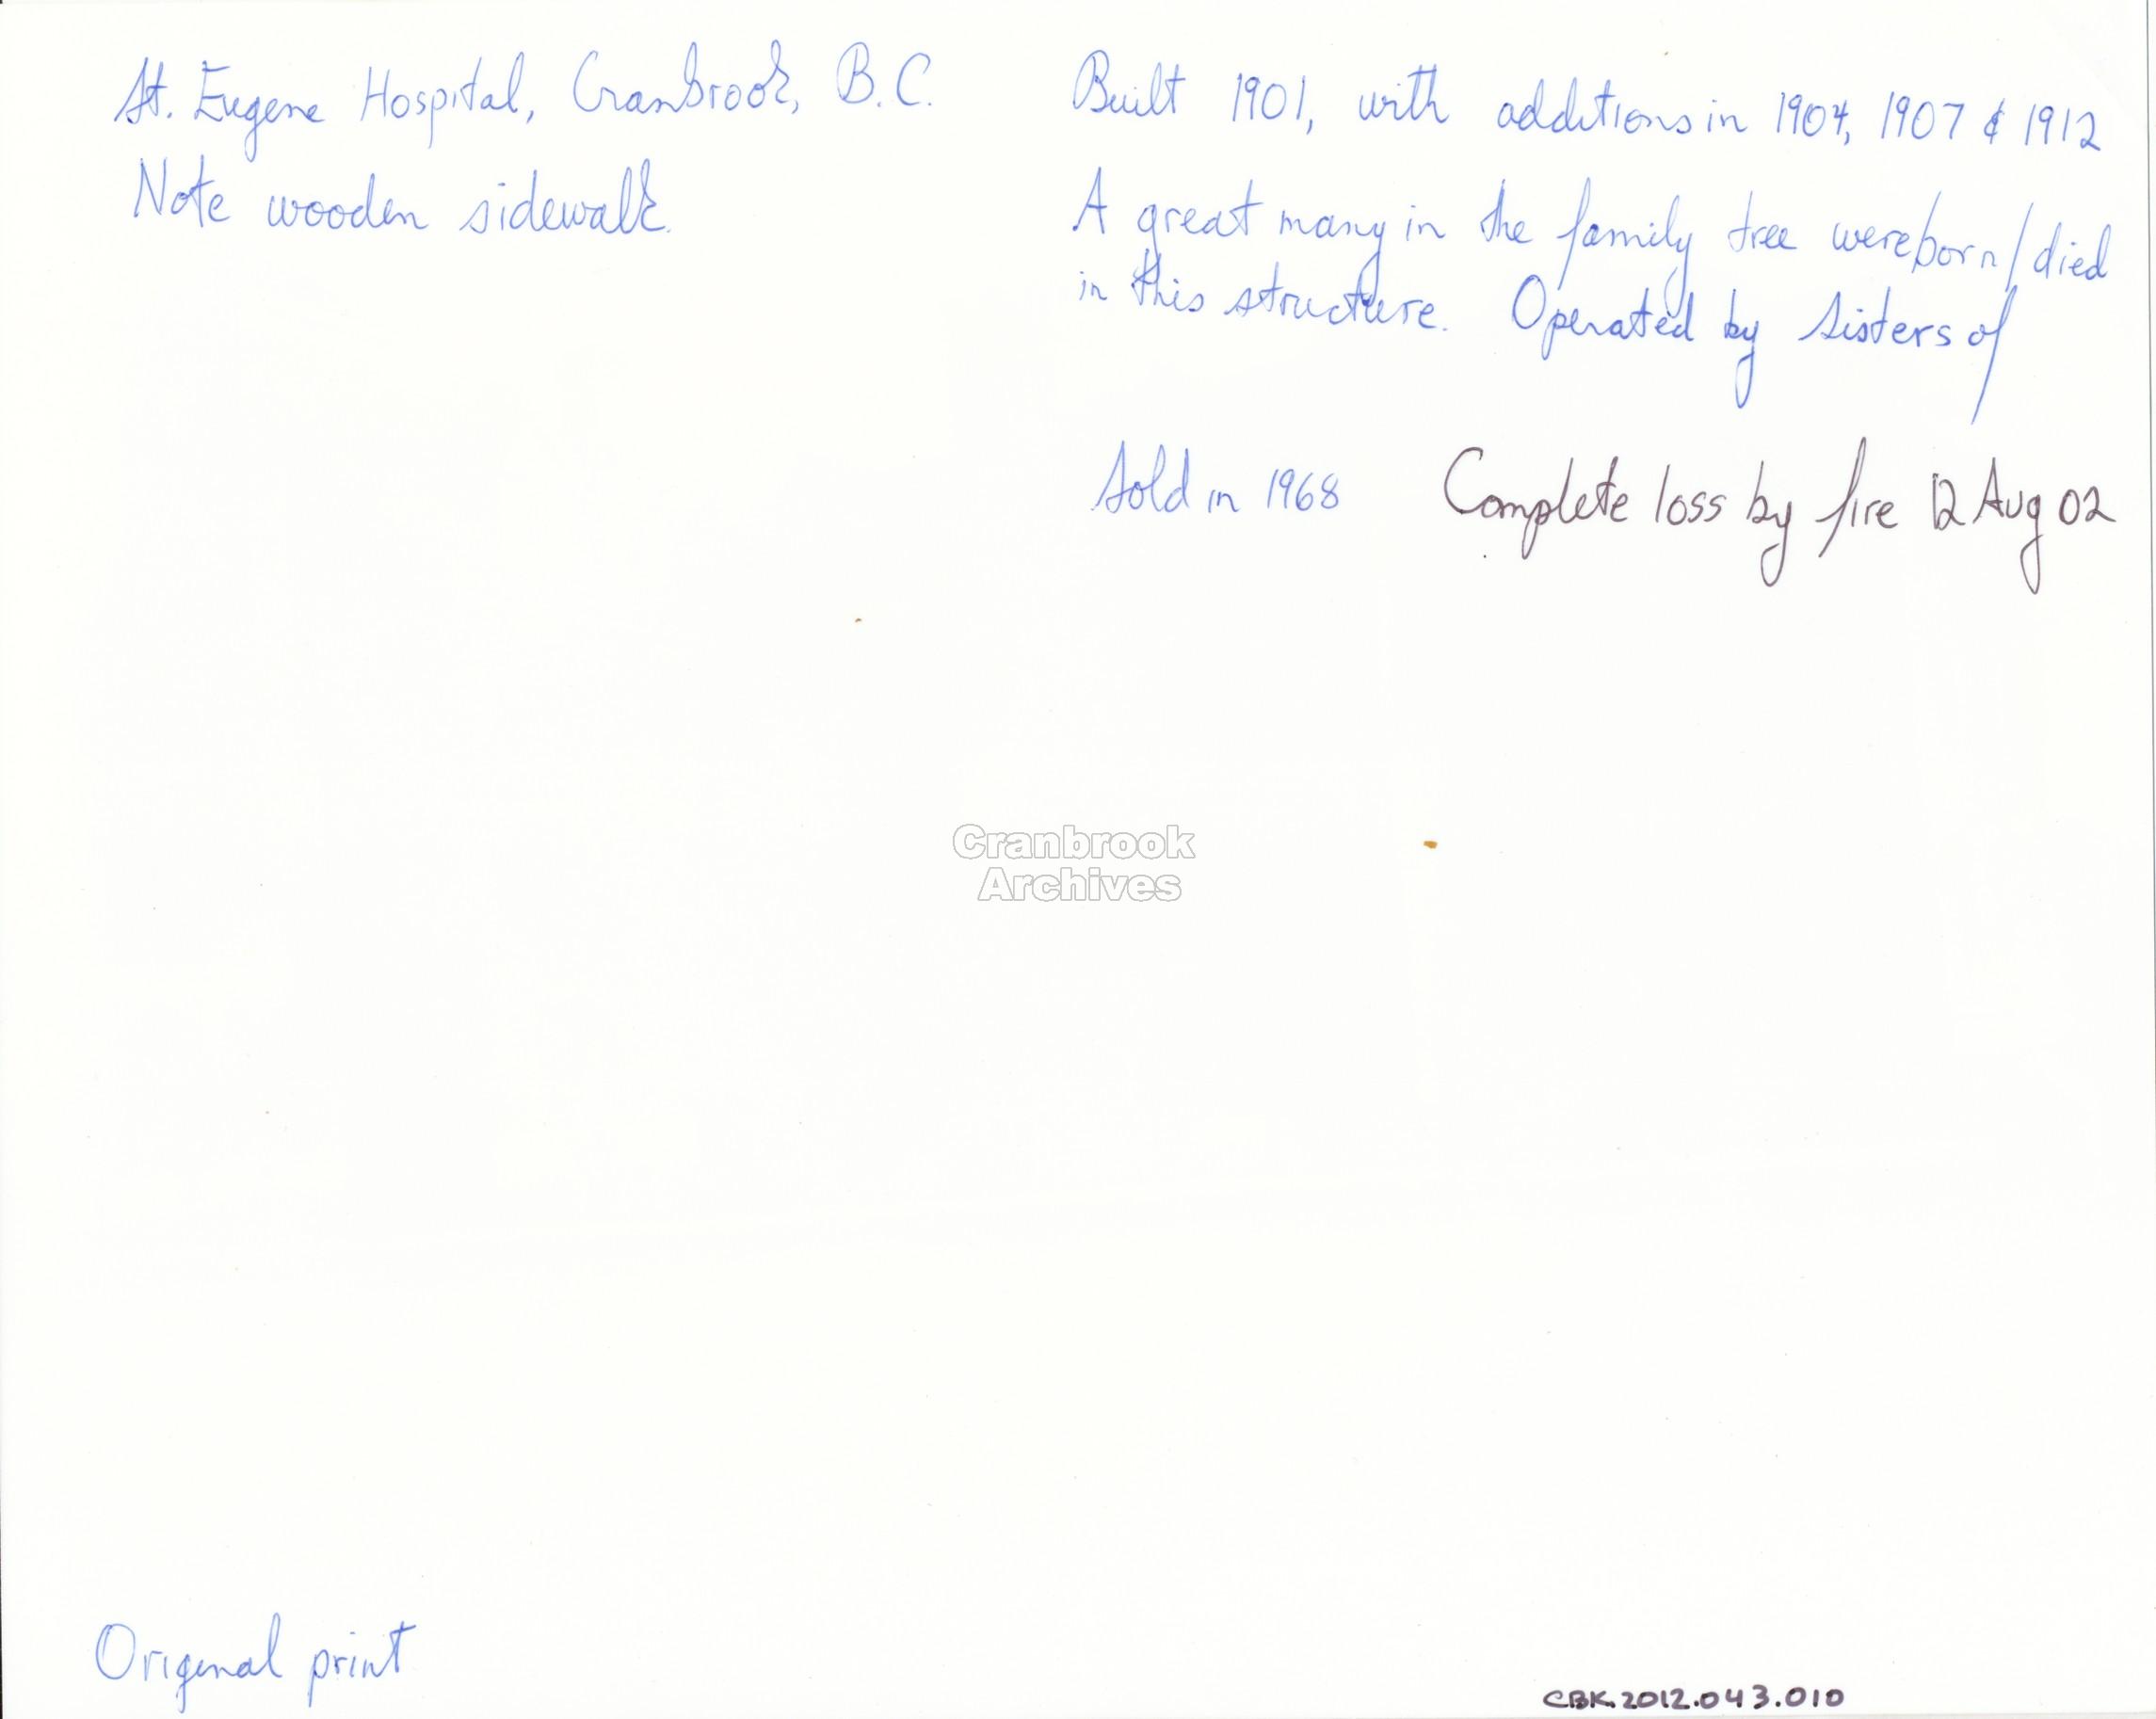 St. Eugene Hospital, Cranbrook, B.C.
Note wooden sidewalk.
Built 1901, with additions in 1904, 1907 & 1912
A great many in the family tree were born/died
in this structure. Operated by Sisters of
Sold in 1968 Complete loss by fire 12 Aug 02
Cranbrook
Archives
Original print
CBK.2012.043.010